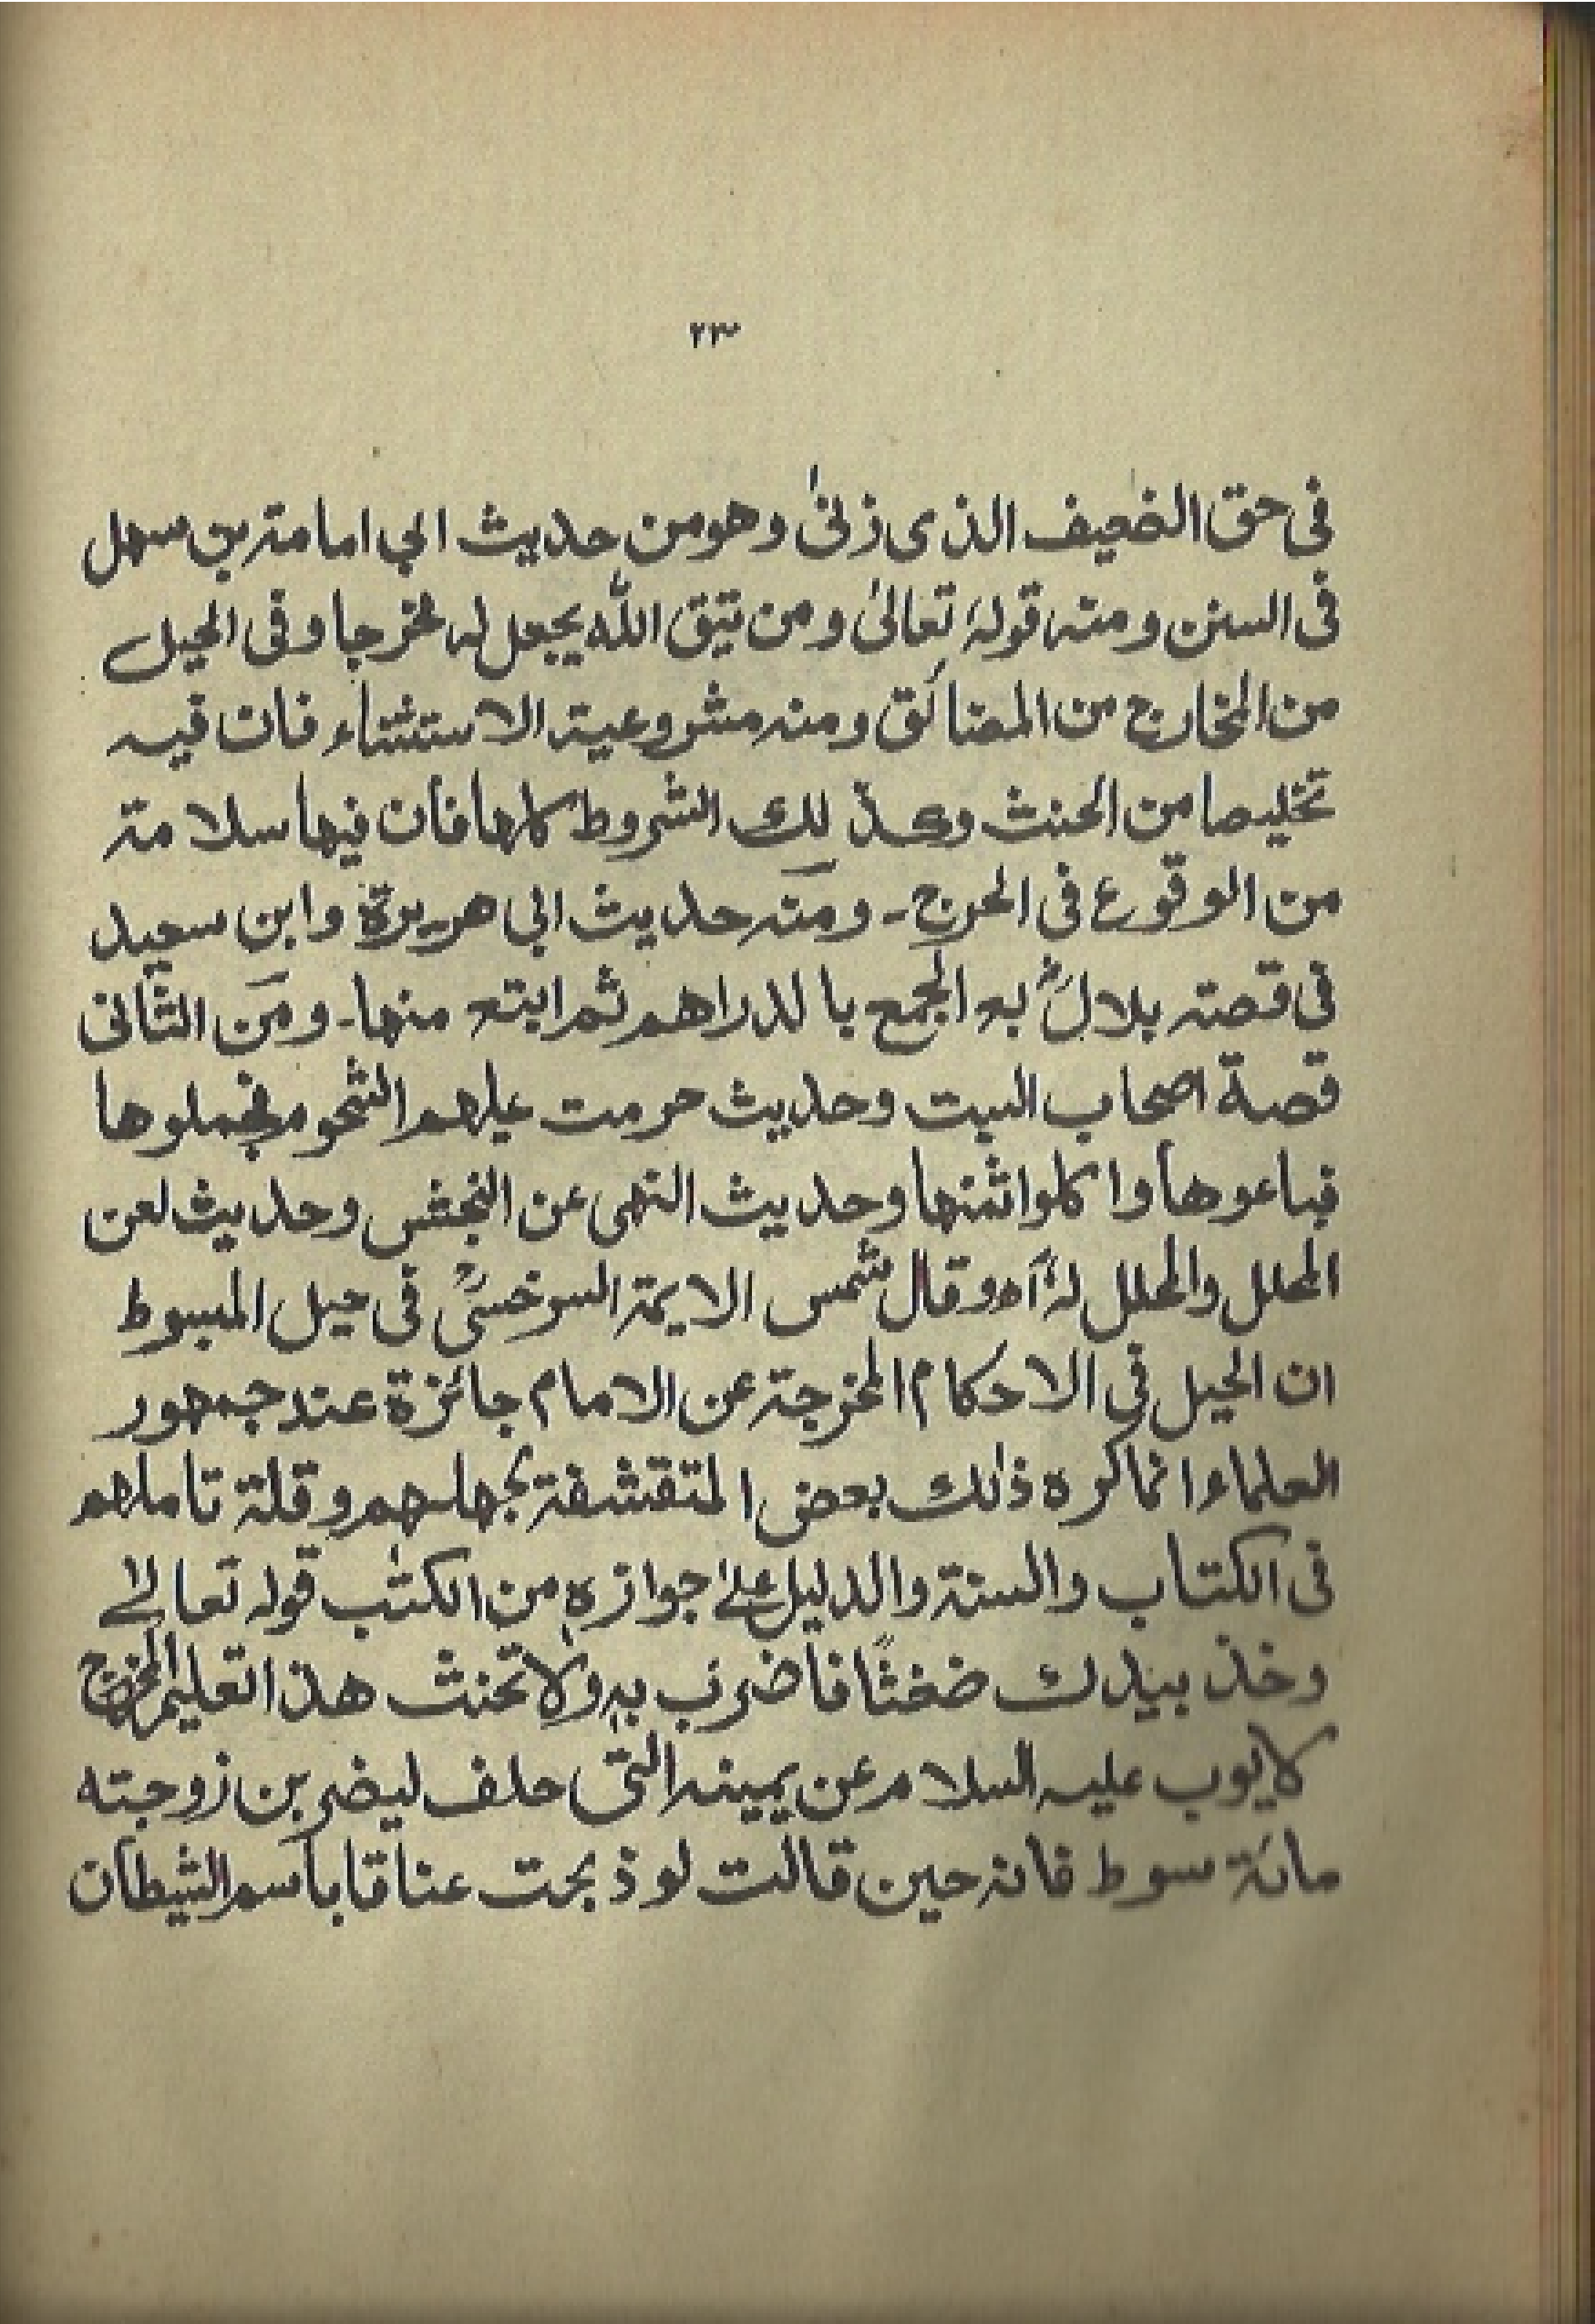 ٢٣
فى حق الضعيف الذى زنىٰ وهومن حديث ابي امامة بن سهل
فى السنن ومنه قولهٗ تعالىٰ ومن يتق الله يجعل له مخرجا وفى الحيل
من المخارج من المضائق ومنه مشروعية الاستثناء فان فيه
تخليصا من الحنث وكذلك الشروط كلها فان فيها سلامة
من الوقوع فى الحرج - ومنه حديث ابى هريرة وابن سعيد
فى قصته بلالؓ بع الجمع بالدراهم ثم ابتع منها - ومن الثانى
قصة اصحاب السبت وحديث حرمت عليهم الشحوم فجملوها
فباعوها واكلوا ثمنها وحديث النهى عن النجش وحديث لعن
المحلل والمحلل لهٗ اه وقال شمس الايمة السرخسىؒ فى حيل المبسوط
ان الحيل فى الاحكام المخرجة عن الامام جائزة عند جمهور
العلماء انما كره ذٰلك بعض المتقشفة بجهلهم وقلة تاملهم
فى الكتاب والسنة والدليل علىٰ جوازهٖ من الكتٰب قوله تعالىٰ
وخذ بيدك ضغثًا فاضرب بهٖ ولا تحنث هذا تعليم المخرج
لايوب عليه السلام عن يمينه التى حلف ليضربن زوجته
مائة سوط فانه حين قالت لو ذبحت عناقا باسم الشيطان